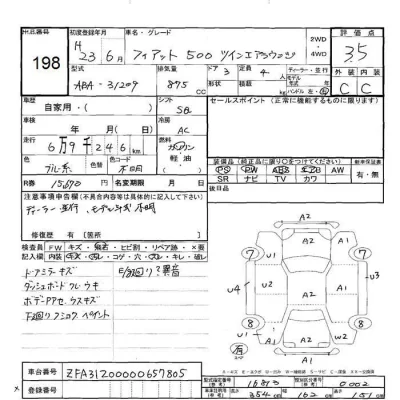 出品番号
198
初度登録年月
H 23年 6月
車名・グレード
フィアット 500 ツインエアラウンジ
2WD
4WD
評価点
3.5
型式
ABA-31209
排気量
875 CC
ドア
3
形状
定員
4 人
積載量
kg
ディーラー・並行
モデル
年式 年
ハンドル 左・右
外装
内装
C
C
車歴
自家用・( )
シフト
冷房
AC
セールスポイント (正常に機能するものに限ります)
走行
6万9千246km
燃料
ガソリン
軽油
色
ブルー系
色替
色コード
不明
装備品 (純正品に限り○をつけてください)
PS PW ABS エアB AW
SR ナビ TV カワ
新車保証書
有・無
R券
15,870 円
名変期限 月 日
後日品
注意事項申告欄(不具合内容等は具体的に記入してください)
ディーラー並行 モデル年式 不明
修復歴 有 [箇所 ]
検査員
記入欄
FW
キズ・飛石・ヒビ割・リペア跡・×要
内装
キズ・汚レ・コゲ・穴・スレ・キレ・破レ
ドアミラー キズ
ダッシュボード ウキ
下回り
異音
A2
A2
A1
A2
A2
U4
U1
U2
U3
A1
A2
7
7
8
8
有
車台番号
ZFA31200000657805
登録番号
型式指定番号
16813
類別区分番号
0002
長さ
354 cm
幅
162 cm
高さ
151 cm